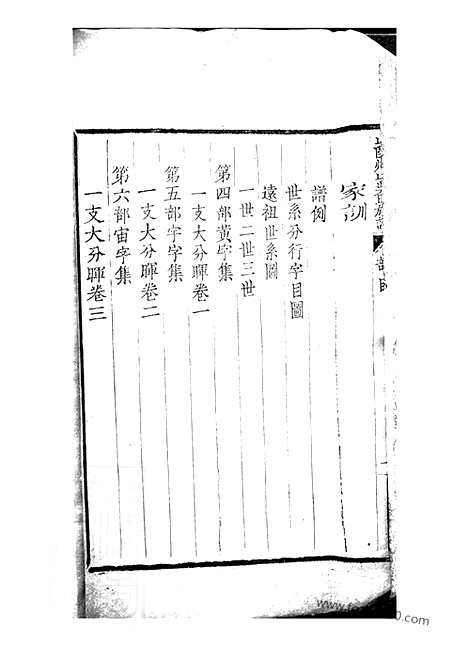 家訓
譜例
世系分行字目圖
遠祖世系圖
一世二世三世
第四部黃字集
一支大分暉卷一
第五部宇字集
一支大分暉卷二
第六部宙字集
一支大分暉卷三